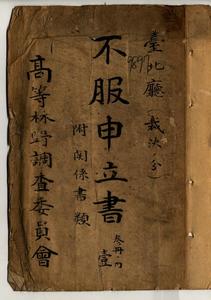 臺北廳（裁決ノ分）
9897
不服申立書
附関係書類
叁冊ノ内
壹
高等林野調査委員會